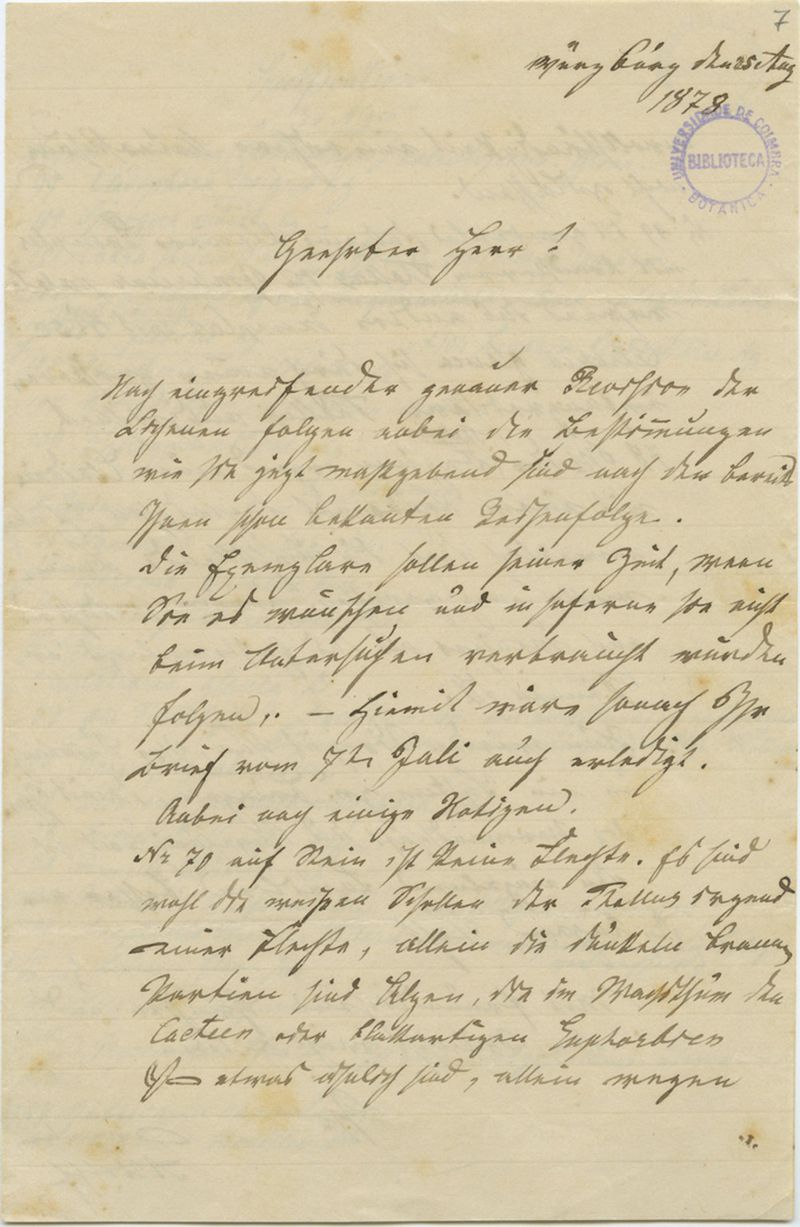 7
Würzburg den 25 Aug
1878
UNIVERSIDADE DE COIMBRA
BIBLIOTECA
BOTANICA
Geehrter Herr!
Nach eingreifender genauer Revision der
Lichenen folgen anbei die Bestimmungen
wie sie jezt massgebend sind nach der bereits
Ihnen schon bekanten Reihenfolge.
Die Exemplare sollen seiner Zeit, wenn
Sie es wünschen, und in soferne sie nicht
beim Untersuchen verbraucht wurden
folgen. – Hiemit wäre sonach Ihr
Brief vom 7ten Juli auch erledigt.
Anbei noch einige Notizen.
Nr 70 auf Stein ist keine Flechte. Es sind
wohl die weissen Schollen der Thallus irgend
einer Flechte, allein die dunkeln braunen
Partien sind Algen, die im Wachsthum den
Cacteen oder blattartigen Euphorbien
etwas ähnlich sind, allein wegen